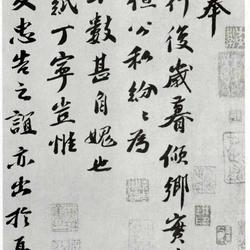 奉
行後歲暮傾鄉實
但公私紛紛為
數甚自媿也
紙丁寧豈惟
友忠告之誼亦出於